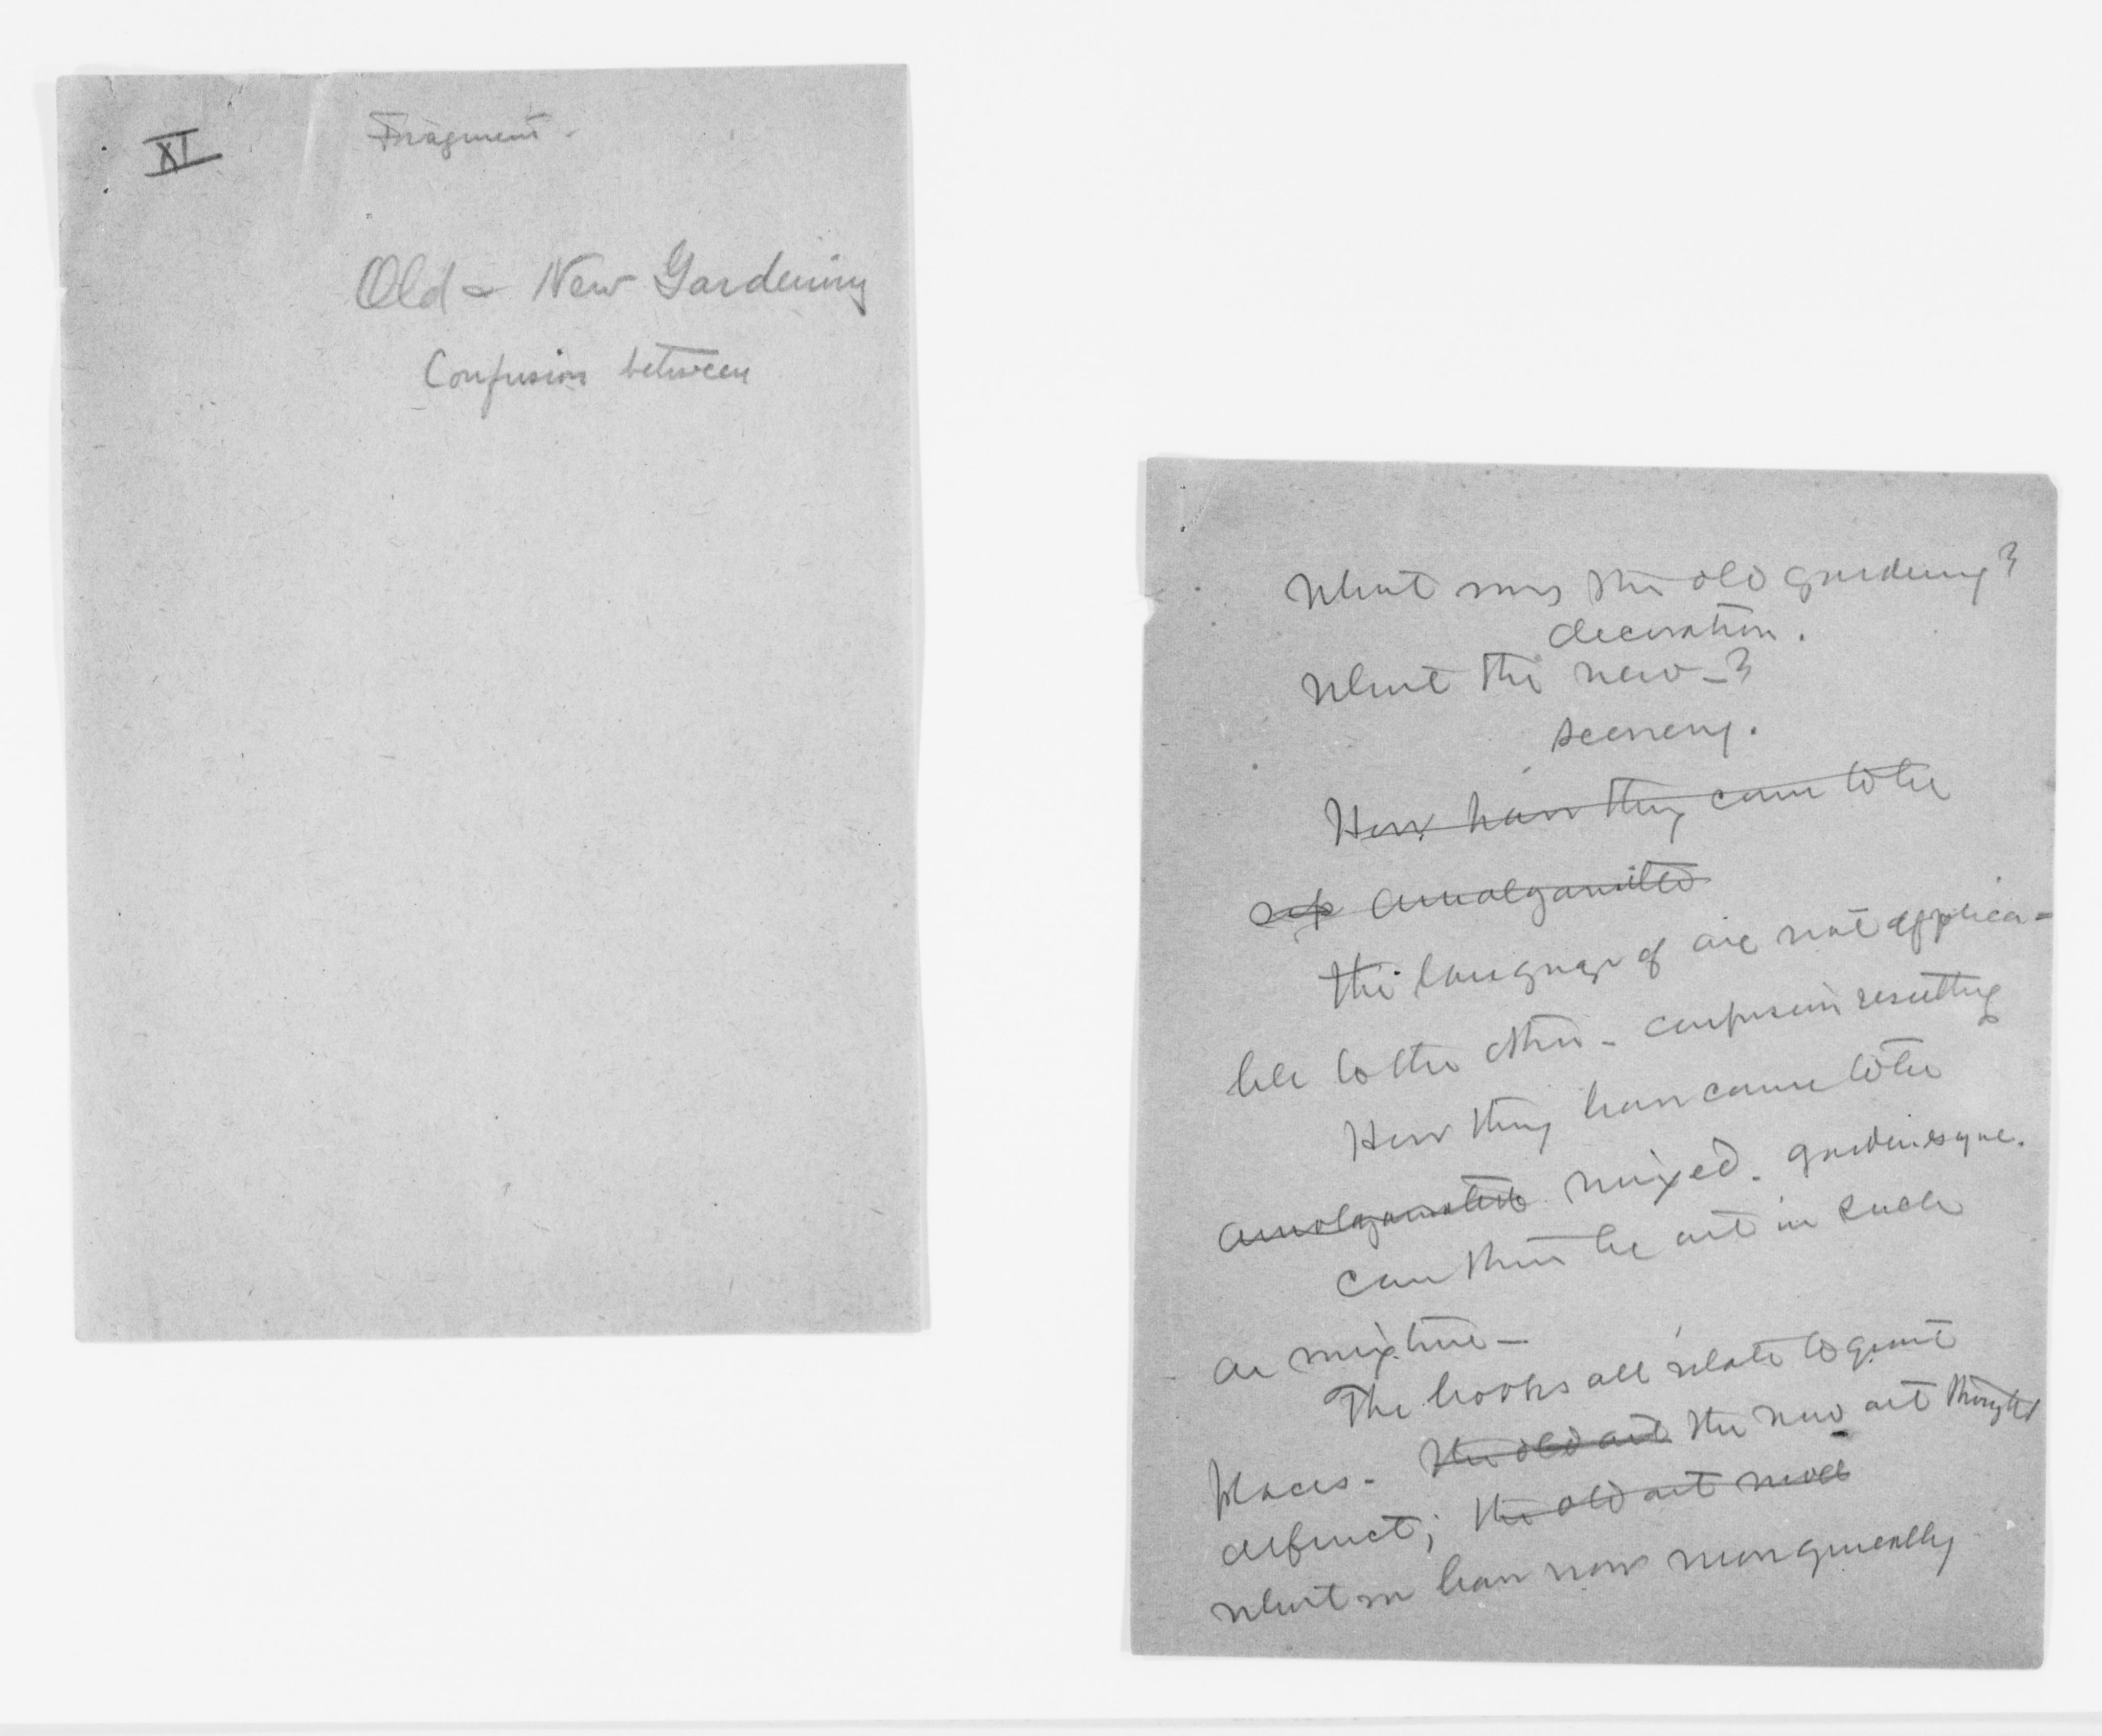 XI
Fragment -
Old & New Gardening
Confusion between
What was the old gardening?
decoration.
What the new - ?
scenery.
How have they come to be
amalgamated
The language of one not applica-
ble to the other - confusion resulting
How they have come to be
amalgamated mixed. gardenesque.
Can there be art in such
a mixture -
The books all relate to great
places - the old art the new art thought
defunct; the old art
What we have now more generally